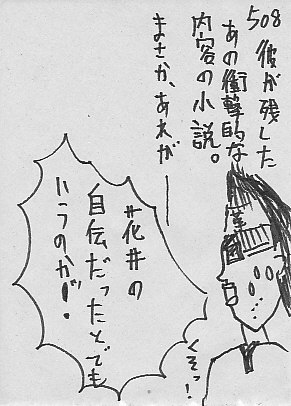 508 彼が残した
あの衝撃的な
内容の小説。
まさか、あれが
花井の
自伝だったとでも
いうのか!
くそっ!